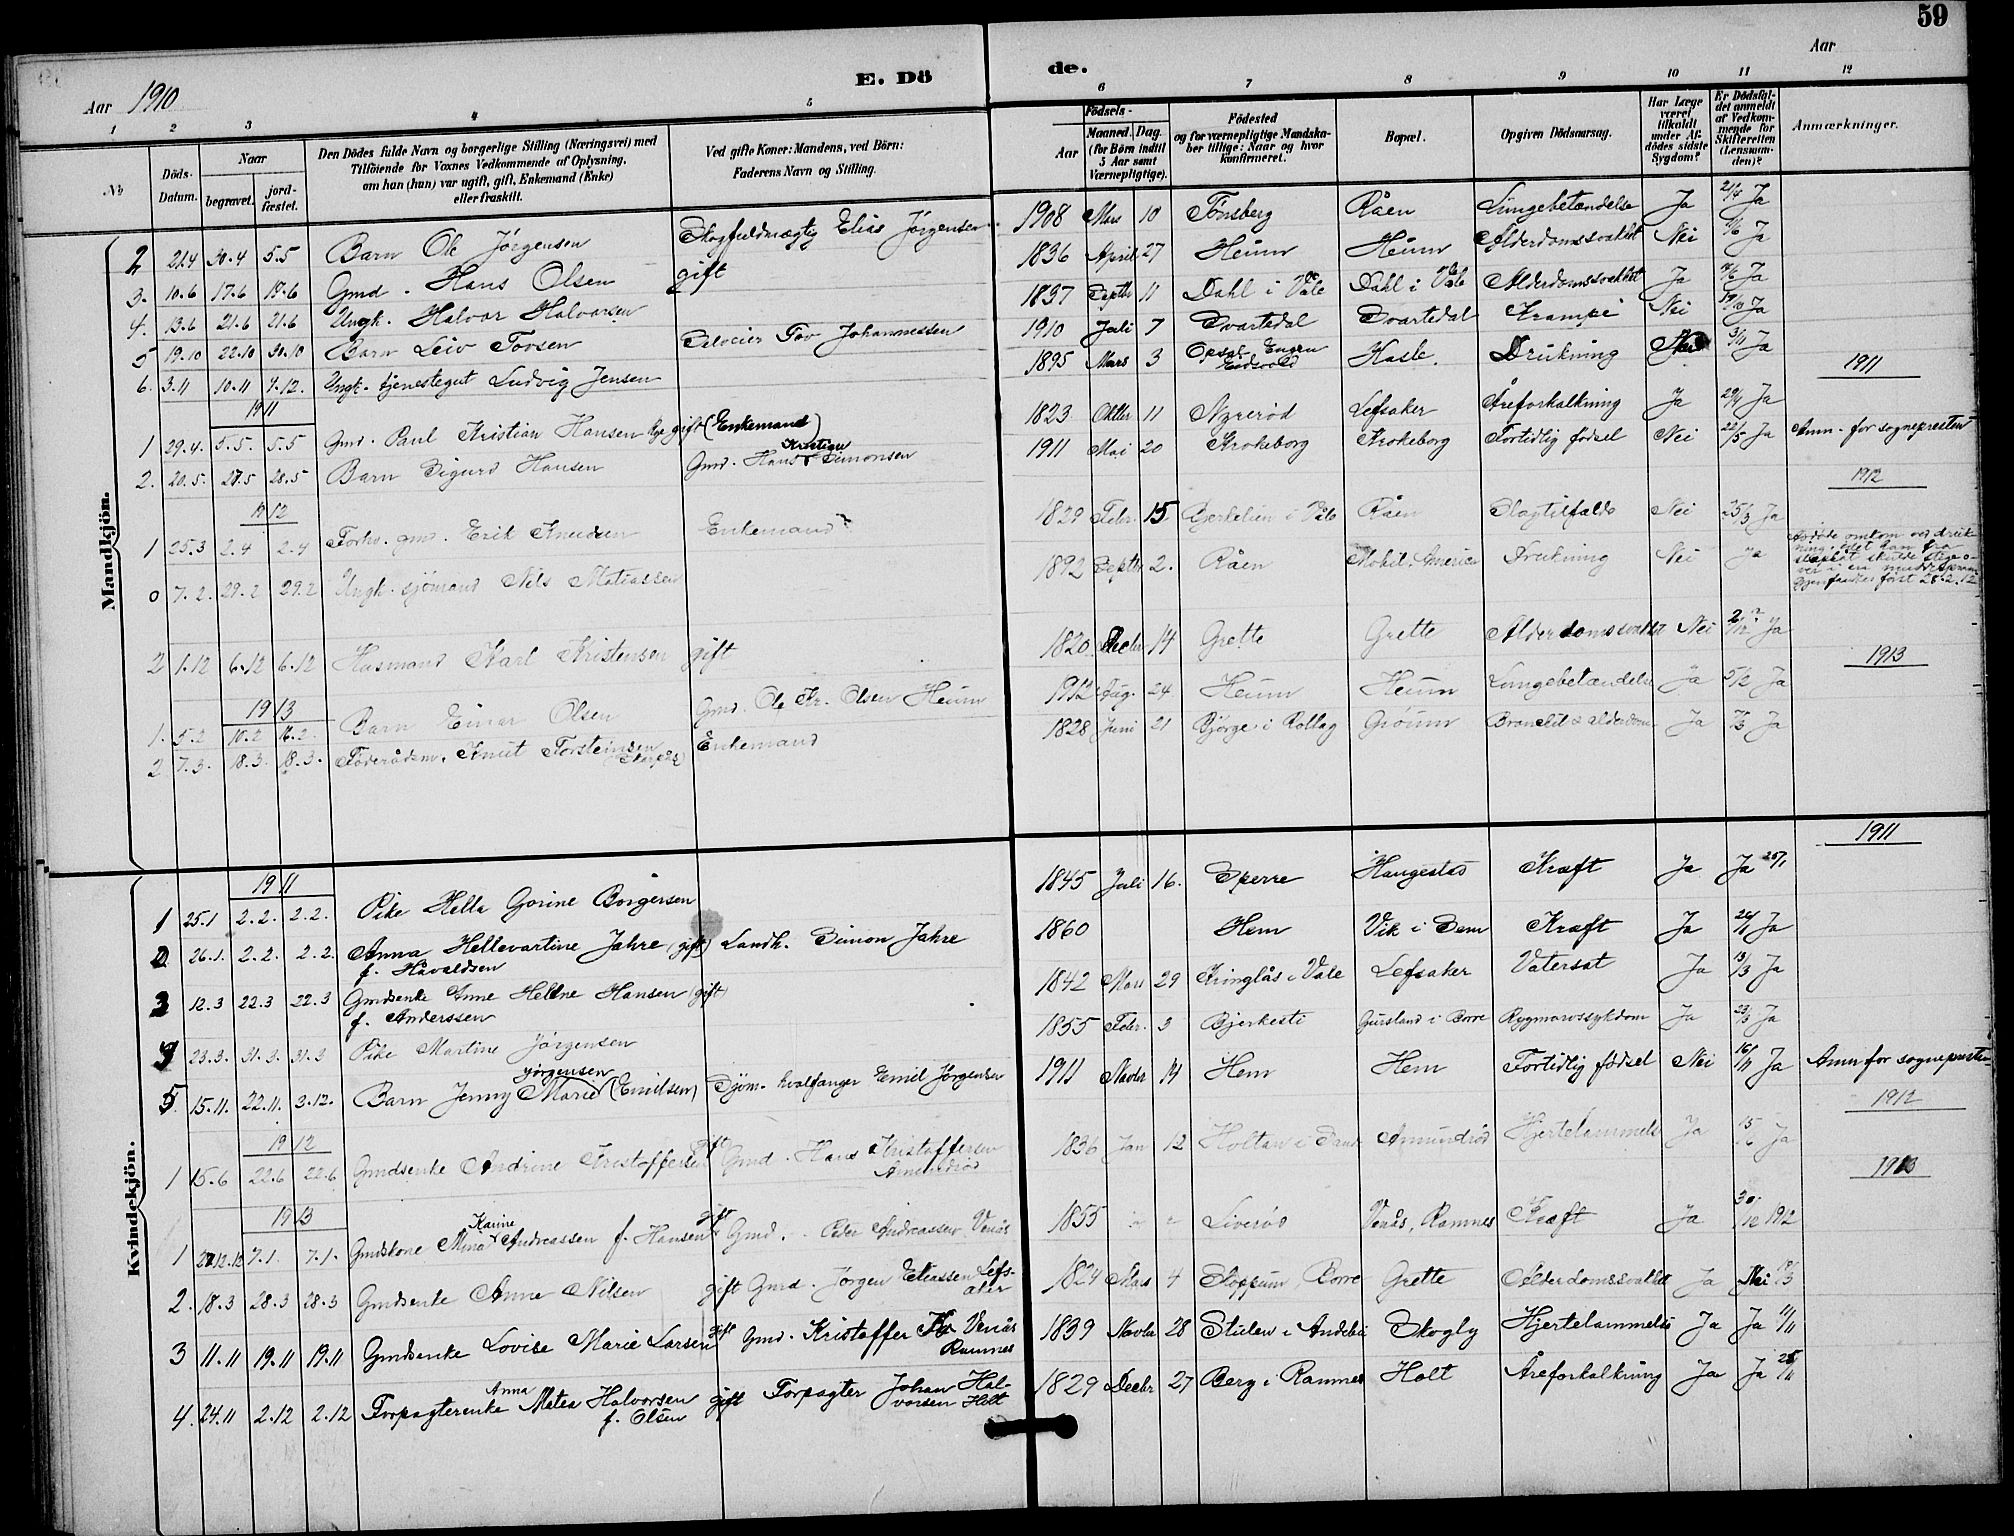 59
E. Dö de.
Aar 1910
Aar
1 2 3 4 5 6 7 8 9 10 11 12
No
Döds-Datum.
Naar
begravet.
jord-fæstet.
Den Dödes fulde Navn og borgerlige Stilling (Næringsvei) med
Tilföiende for Voxnes Vedkommende af Oplysning,
om han (hun) var ugift, gift, Enkemand (Enke)
eller fraskilt.
Ved gifte Koner: Mandens, ved Börn:
Faderens Navn og Stilling.
Födsels-
Aar
Maaned. Dag.
(for Börn indtil
5 Aar samt
Værnepligtige).
Födested
og for værnepligtige Mandska-
ber tillige: Naar og hvor
konfirmeret.
Bopæl.
Opgiven Dödsaarsag.
Har Læge
været
tilkaldt
under Af-
dödes sidste
Sygdom?
Er Dödsfal-
det anmeldt
af Vedkom-
mende for
Skifteretten
(Lensman-
den)?
Anmærkninger.
Mandkjön.
2 21.4 30.4 5.5 Barn Ole Jörgensen Skogfuldmægtig Elias Jörgensen 1908 Mars 10 Tönsberg Råen Lungebetændelse Ja 21/4 Ja
3. 10.6 17.6 17.6 Gmd. Hans Olsen gift 1836 April 27 Heum Heum Alderdomssvakhet Nei Ja
4. 13.6 21.6 21.6 Ungk. Halvor Halvorsen 1837 Septbr 11 Dahl i Våle Dahl i Våle Alderdomssvakhet Ja Ja
5 19.10 22.10 30.10 Barn Leiv Tovsen Tov Johannessen 1910 Juli 7 Svartedal Svartedal Krampe Nei 19/10 Ja
6. 3.11 10.11 4.12. Ungk. tjenestegut Ludvig Jensen 1895 Mars 3 Eidsvold Hasle Drukning 3/11 Ja
1911 1911
1 29.4. 5.5. 5.5 Gmd. Paul Kristian Hansen gift (Enkemand) 1823 Oktbr 11 Nyrerød Lefsaker Åreforkalkning Ja 29/4 Ja
2. 20.5. 28.5 28.5 Barn Sigurd Hansen Gmd. Hans Kristian Simonsen 1911 Mai 20 Krokeborg Krokeborg Fortidlig fødsel Nei 22/5 Ja Anm. for sognepresten
1912 1912
1 25.3 2.4 2.4 Forhv. gmd. Erik Knudsen Enkemand 1829 Febr. 15 i Våle Råen Slagtilfælde Nei 25/3 Ja
0 7.2. 29.2 29.2 Ungk. sjömand Nils Matiassen 1892 Septbr 2. Råen Mobil. America Drukning Nei Ja Afdöde omkom ved druk-
ning, idet han fra
skulde stige o-
ver i en
først 28.2.12
2 1.12 6.12 6.12 Husmand Karl Kristensen gift 1820 Decbr 14 Grette Grette Alderdomssvakhet Nei 2/12 Ja
1913 1913
1. 5.2 16.2 16.2. Barn Einar Olsen Gmd. Ole Kr. Olsen Heum 1912 Aug. 24. Heum Heum Lungebetændelse Ja 5/2 Ja
2 7.3. 18.3. 18.3. Föderådsm. Knut Torsteinsen Enkemand 1828 Juni 21 Bjørge i Rollag Grøum Bronchit & alderdom Ja Ja
Kvindekjön.
1911 1911
1 25.1 2.2. 2.2. Pike Hella Gorine Borgersen 1845 Juli 16. Sperre Haugestad Kræft Ja Ja 25/1
2 26.1. 2.2. 2.2. Anna Hellevartine Jahre (gift) Landh. Simon Jahre 1860 Hem Vik i Sem Kræft Ja Ja
f. Håvaldsen
3 12.3 22.3 22.3 Gmdsenke Anne Helene Hansen (gift) 1842 Mars 29 Kringlås i Våle Lefsaker Vatersot Ja 13/3 Ja
f. Anderssen
4 23.3. 31.3. 31.3 Pike Martine Jørgensen 1855 Febr. 3 Bjerkesti Gursland i Borre Rygmarvssykdom Ja 23/3 Ja
5. 15.11. 22.11. 3.12. Barn Jenny Marie Jørgensen (Emilsen) Sjöm. hvalfanger Emil Jørgensen 1911 Novbr 14 Hem Hem Fortidlig fødsel Nei 16/11 Ja Anm for sognepresten
1912 1912
1 15.6 22.6 22.6 Gmdsenke Andrine Kristoffersen gift Gmd. Hans Kristoffersen 1836 Jan 12 Holtan i Amundrød Hjertelammelse Ja 15/6 Ja
Amundrød
1913 1913
1 27.12.12 7.1. 7.1. Gmdskone Mina Karine Andreassen f. Hansen gift Gmd. Peder Andreassen Venås 1855 Liverød Venås, Ramnes Kræft Ja 30/12 1912
2. 18.3 28.3 28.3 Gmdsenke Anne Nilsen gift Gmd. Jørgen Eliassen Lefsaker 1824 Mars 4 Stoppum Borre Grette Alderdomssvakhet Ja Nei
3 11.11 19.11 19.11 Gmdsenke Lovise Marie Larsen gift Gmd. Kristoffer Venås Ramnes 1839 Novbr 28 Stulen i Andebu Skogly Hjertelammelse Ja Ja 11/11
4. 24.11 2.12 2.12 Forpagterenke Anna Metea Halvorsen gift Forpagter Johan Hal- 1829 Decbr 27 Berg i Ramnes Holt Åreforkalkning Ja Ja 25/11
f. Olsen vorsen Holt